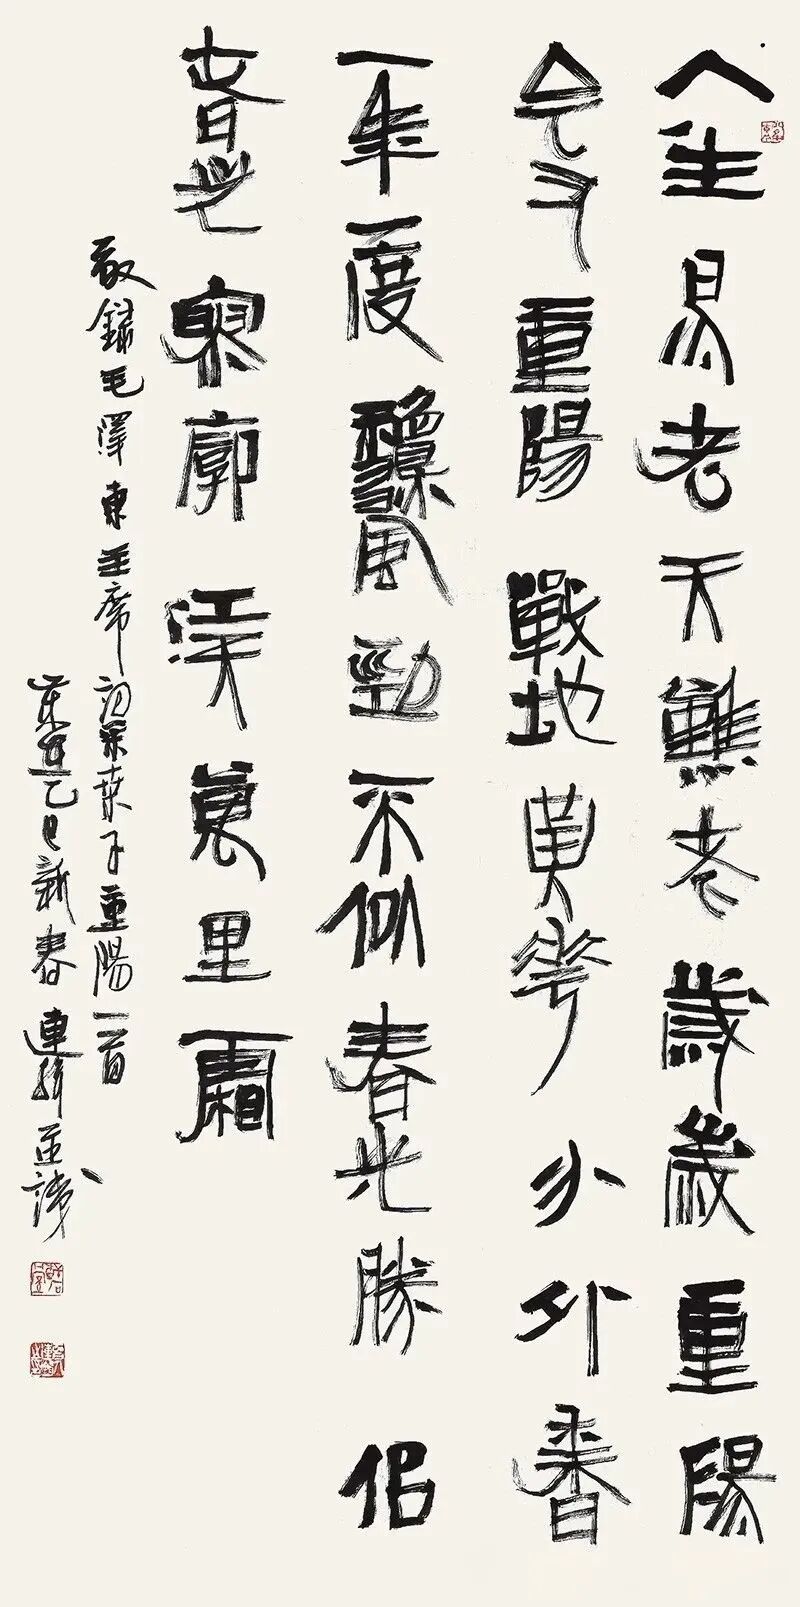 人生易老天難老歲歲重陽
今又重陽戰地黃花分外香
一年一度龝風勁不似春光勝佀
旾光寥廓江天萬里霜
敬錄毛澤東主席詞采桑子重陽一首
乙巳新春連輯並識